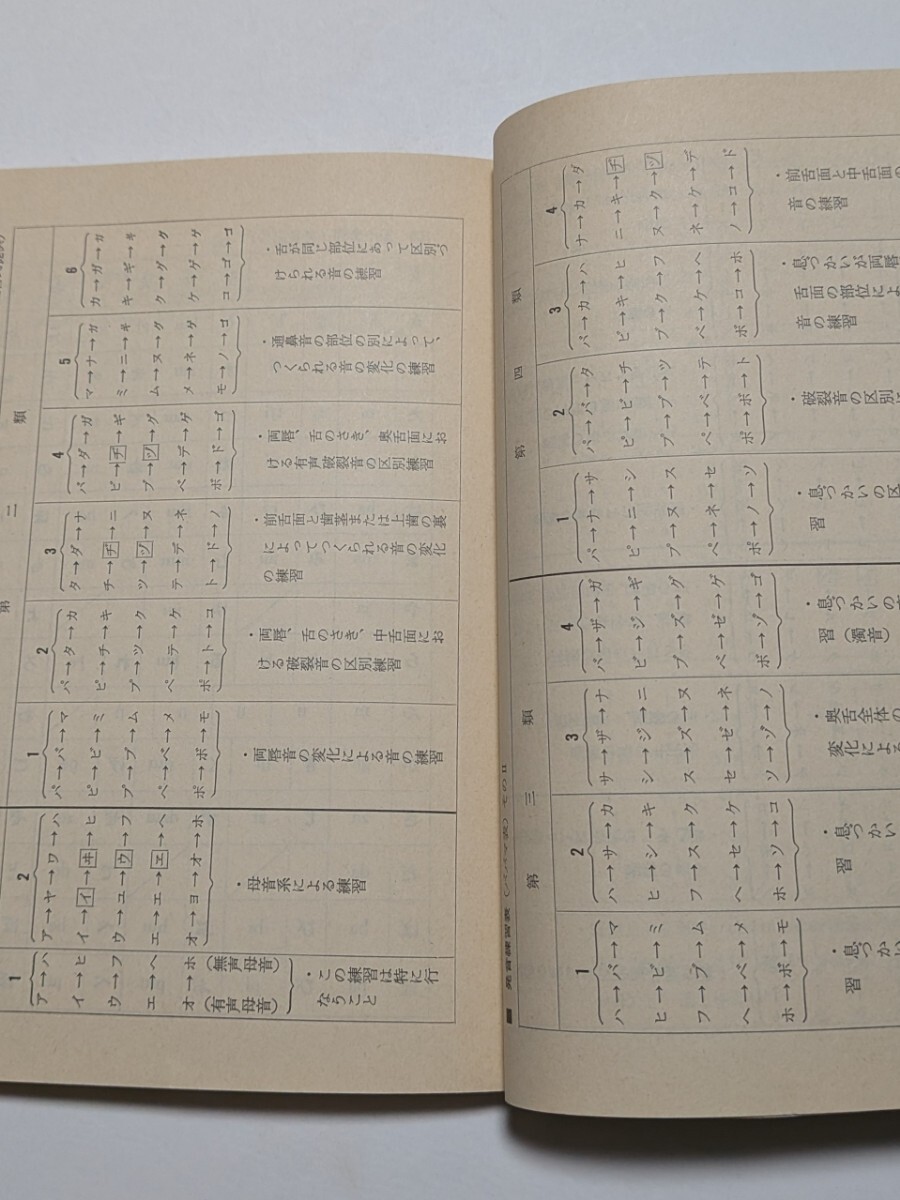 1
ア→ハ
イ→ヒ
ウ→フ
エ→ヘ
オ→ホ
(有声母音)(無声母音)
・この練習は特に行
なうこと
2
ア→ヤ→ワ→ハ
イ→イ→ヰ→ヒ
ウ→ユ→ウ→フ
エ→エ→ヱ→ヘ
オ→ヨ→オ→ホ
・母音系による練習
第二類
1
パ→バ→マ
ピ→ビ→ミ
プ→ブ→ム
ペ→ベ→メ
ポ→ボ→モ
・両唇音の変化による音の練習
2
パ→タ→カ
ピ→チ→キ
プ→ツ→ク
ペ→テ→ケ
ポ→ト→コ
・両唇、舌のさき、中舌面にお
ける破裂音の区別練習
3
タ→ダ→ナ
チ→ヂ→ニ
ツ→ヅ→ヌ
テ→デ→ネ
ト→ド→ノ
・前舌面と歯茎または上歯の裏
によってつくられる音の変化
の練習
4
バ→ダ→ガ
ビ→ヂ→ギ
ブ→ヅ→グ
ベ→デ→ゲ
ボ→ド→ゴ
・両唇、舌のさき、奥舌面にお
ける有声破裂音の区別練習
5
マ→ナ→ガ
ミ→ニ→ギ
ム→ヌ→グ
メ→ネ→ゲ
モ→ノ→ゴ
・通鼻音の部位の別によって、
つくられる音の変化の練習
6
カ→ガ→ガ
キ→ギ→ギ
ク→グ→グ
ケ→ゲ→ゲ
コ→ゴ→ゴ
・舌が同じ部位にあって区別づ
けられる音の練習
■ 発音練習表(パバマ表) その II
第三類
1
ハ→パ→マ
ヒ→ピ→ミ
フ→プ→ム
ヘ→ペ→メ
ホ→ポ→モ
・息づかい
習
2
ハ→サ→カ
ヒ→シ→キ
フ→ス→ク
ヘ→セ→ケ
ホ→ソ→コ
・息づかい
習
3
サ→ザ→ナ
シ→ジ→ニ
ス→ズ→ヌ
セ→ゼ→ネ
ソ→ゾ→ノ
・奥舌全体の
変化による
4
バ→ザ→ガ
ビ→ジ→ギ
ブ→ズ→グ
ベ→ゼ→ゲ
ボ→ゾ→ゴ
・息づかいの
習(濁音)
第四類
1
パ→ナ→サ
ピ→ニ→シ
プ→ヌ→ス
ペ→ネ→セ
ポ→ノ→ソ
・息づかいの区
習
2
パ→バ→タ
ピ→ビ→チ
プ→ブ→ツ
ペ→ベ→テ
ポ→ボ→ト
・破裂音の区別に
3
パ→カ→ハ
ピ→キ→ヒ
プ→ク→フ
ペ→ケ→ヘ
ポ→コ→ホ
・息づかいが両唇
舌面の部位によ
音の練習
4
ナ→カ→ダ
ニ→キ→ヂ
ヌ→ク→ヅ
ネ→ケ→デ
ノ→コ→ド
・前舌面と中舌面の
音の練習